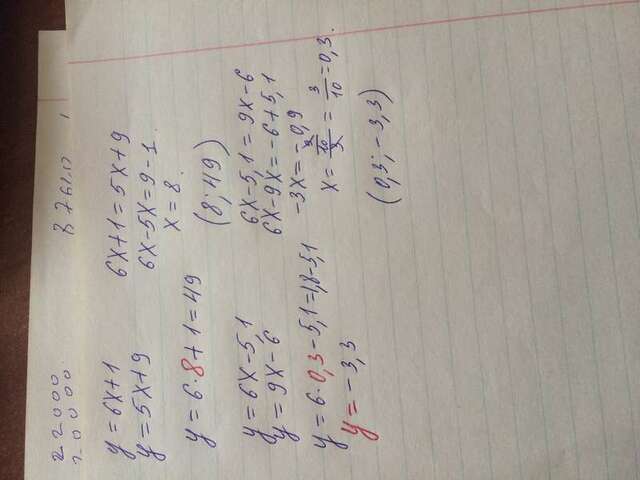 22000
20000
y = 6x+1
y = 5x+9
6x+1 = 5x+9
6x-5x = 9-1
x = 8.
y = 6·8+1 = 49
(8; 49)
y = 6x-5,1
y = 9x-6
6x-5,1 = 9x-6
6x-9x = -6+5,1
-3x = -0,9
y = 6·0,3-5,1 = 1,8-5,1
x = 9/10/3 = 3/10 = 0,3.
y = -3,3
(0,3; -3,3)